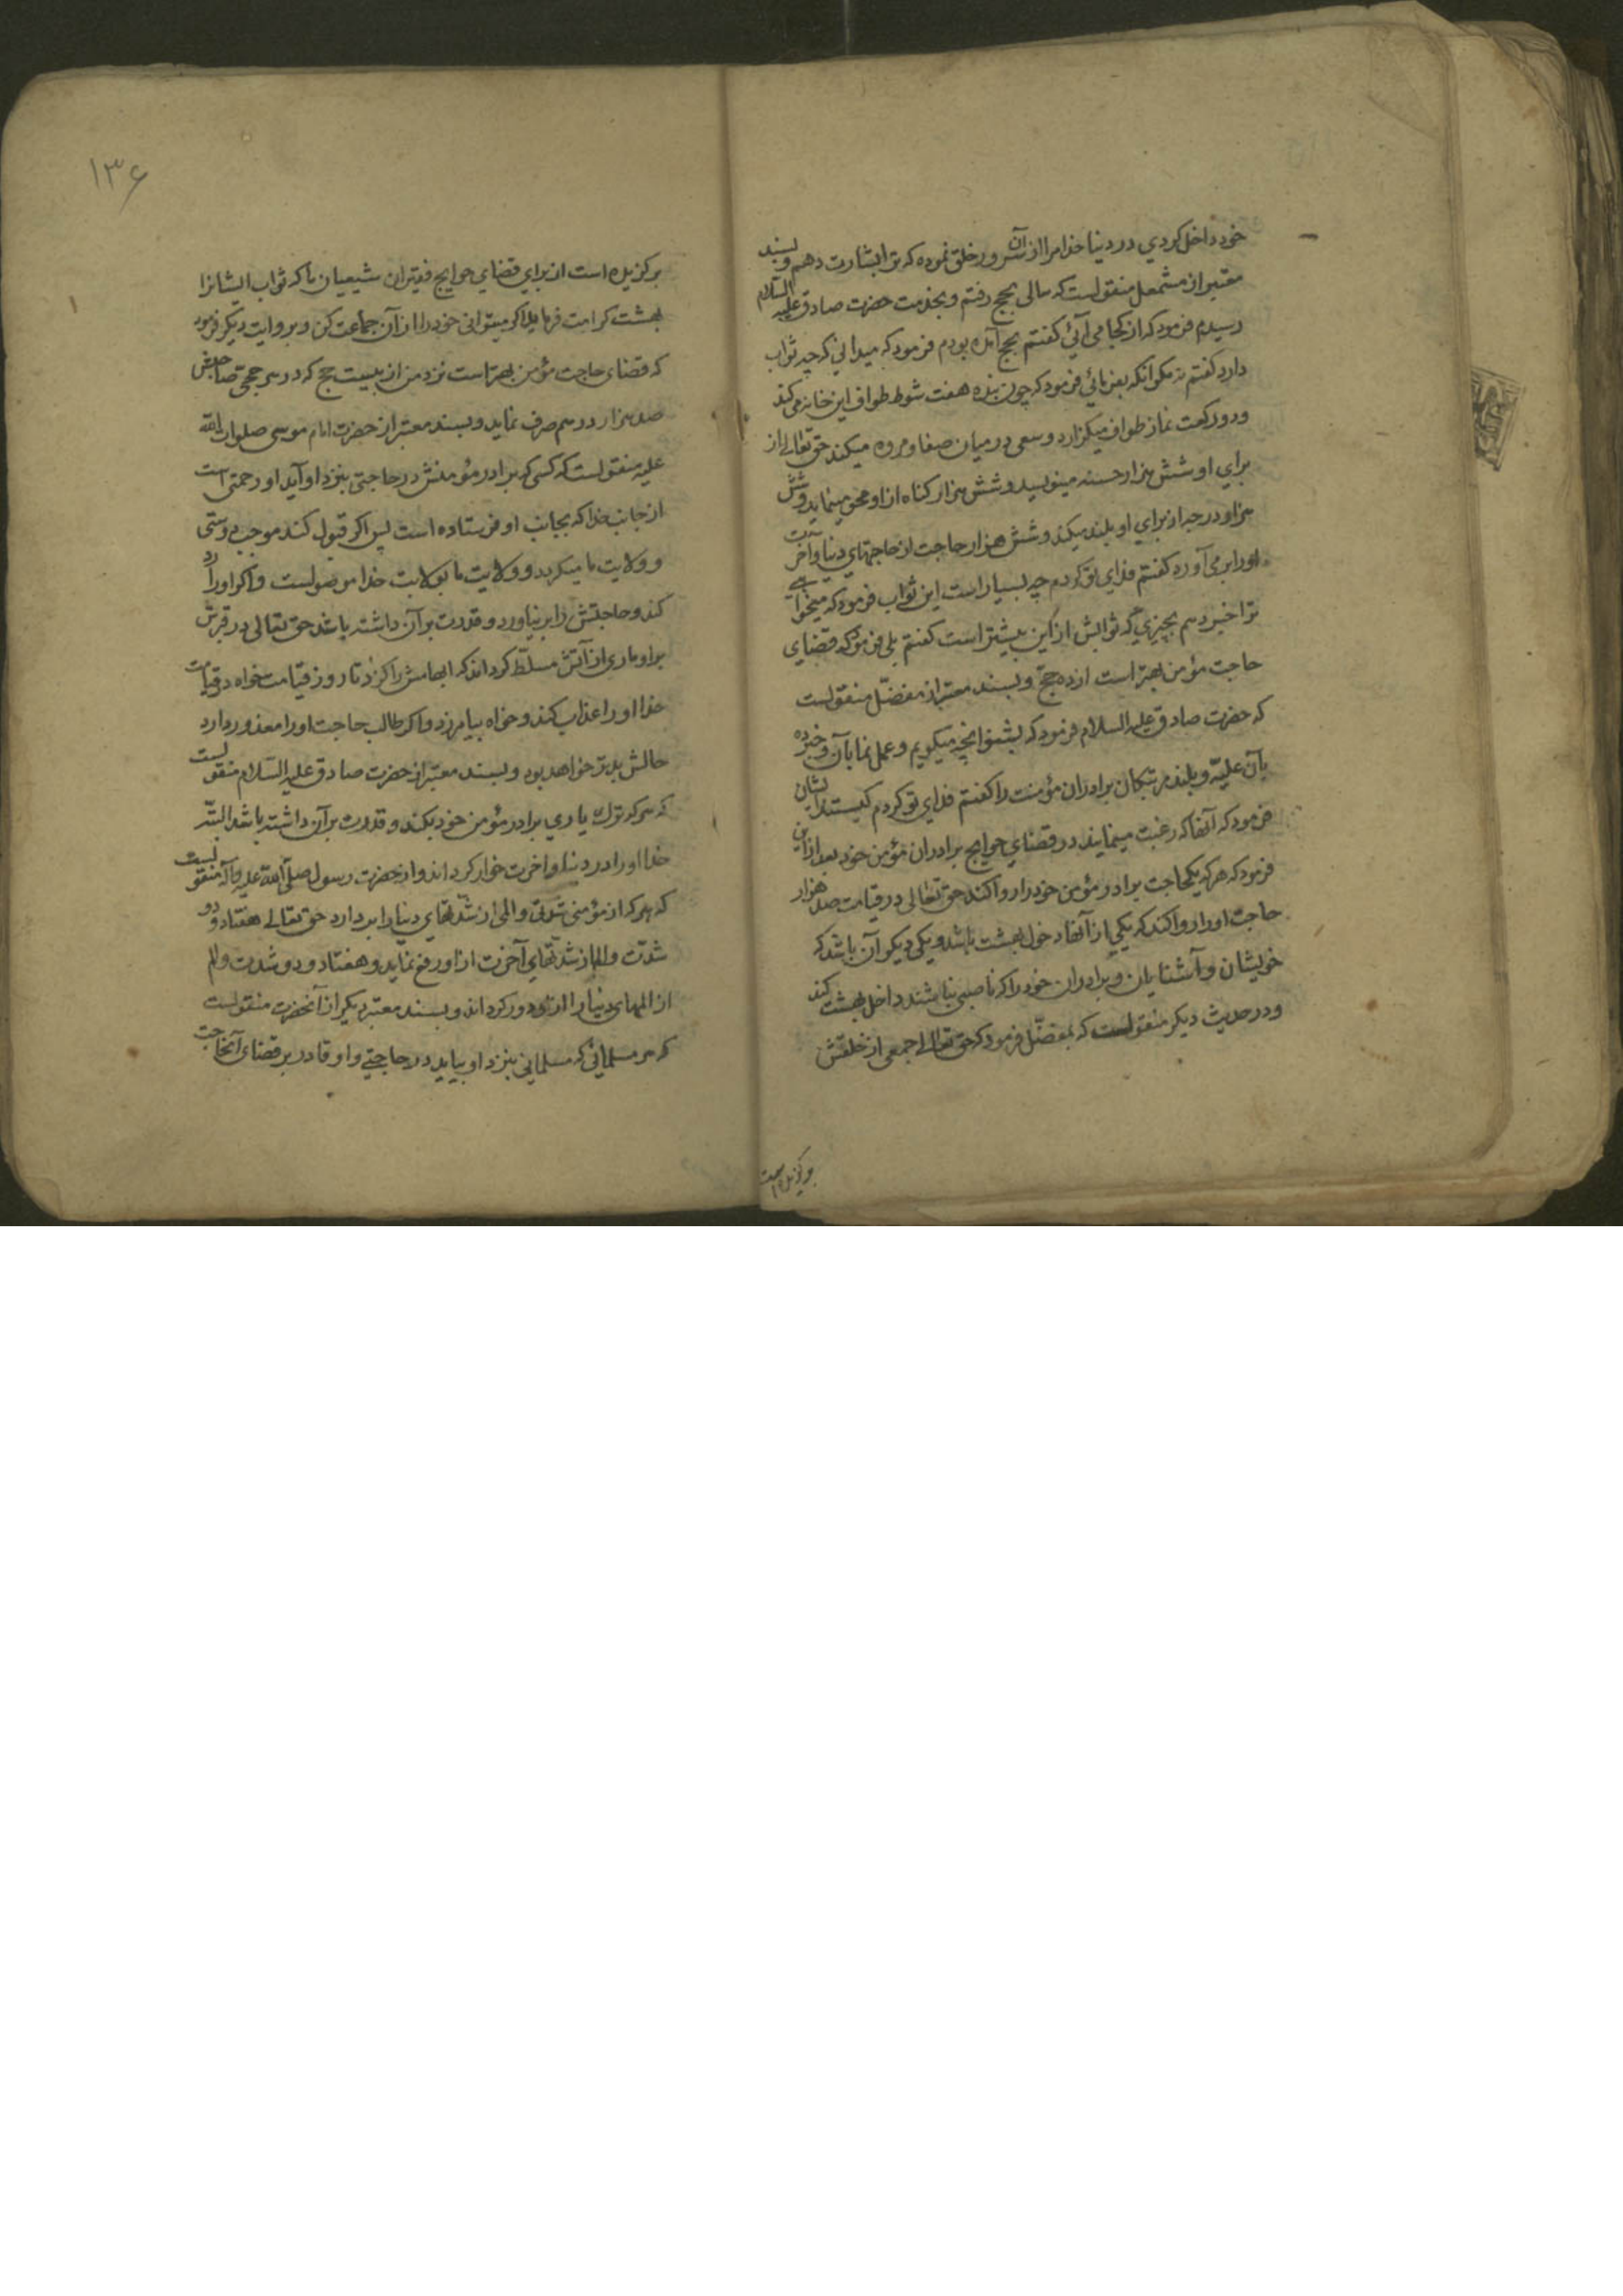 خود داخل کردی در دنیا خدا مرا از آن سرور خلق نموده که ترا بشارت دهم و بسند
معتبر از مشمعل منقولست که سالی بحج رفتم و بخدمت حضرت صادق علیه السلام
رسیدم فرمود که از کجا می آئی گفتم بحج آمده بودم فرمود که میدانی که چه ثواب
دارد گفتم نه مکر آنکه بفرمائی فرمود که چون بنده هفت شوط طواف این خانه می کند
و دو رکعت نماز طواف میکزارد و سعی در میان صفا و مروه میکند حق تعالی از
برای او شش هزار حسنه مینویسد و شش هزار کناه از او محو مینماید و شش
هزار درجه از برای او بلند میکند و شش هزار حاجت از حاجتهای دنیا و آخرت
او را بر می آورد گفتم فدای تو کردم چه بسیار است این ثواب فرمود که میخواهی
ترا خبر دهم بچیزی که ثوابش از این بیشتر است گفتم بلی فرمود که قضای
حاجت مؤمن بهتر است از ده حج و بسند معتبر از مفضّل منقولست
که حضرت صادق علیه السلام فرمود که بشنو انچه میکویم و عمل نما بآن و خبر ده
بآن علیّه و بلند مرتبکان برادران مؤمنت را گفتم فدای تو کردم کیستند ایشان
فرمود که آنها که رغبت مینمایند در قضای حوایج برادران مؤمن خود بعد از این
فرمود که هر که یکحاجت برادر مؤمن خود را روا کند حق تعالی در قیامت صد هزار
حاجت او را روا کند که یکی از آنها دخول بهشت باشد و یکی دیکر آن باشد که
خویشان و آشنایان و برادران خود را که ناصبی نباشند داخل بهشت کند
و در حدیث دیکر منقولست که بمفضّل فرمود که حق تعالی جمعی از خلقش
برکزیده است
۱۳۶
برکزیده است از برای قضای حوایج فقیران شیعیان ما که ثواب ایشانرا
بهشت کرامت فرماید اکر میتوانی خود را از آن جماعت کن و بروایت دیکر فرمود
که قضای حاجت مؤمن بهتر است نزد من از بیست حج که در هر حجی صاحبش
صد هزار درهم صرف نماید و بسند معتبر از حضرت امام موسی صلوات الله
علیه منقولست که کسی که برادر مؤمنش در حاجتی بنزد او آید او رحمتی است
از جانب خدا که بجانب او فرستاده است پس اکر قبول کند موجب دوستی
و ولایت ما میکردد و ولایت ما بولایت خدا موصولست و اکر او را رد
کند و حاجتش را بر نیاورد و قدرت بر آن داشته باشد حق تعالی در قبرش
بر او ماری از آتش مسلّط کرداند که ابهامش را کزد تا روز قیامت خواه در قیامت
خدا او را عذاب کند و خواه بیامرزد و اکر طالب حاجت او را معذور دارد
حالش بدتر خواهد بود و بسند معتبر از حضرت صادق علیه السّلام منقولست
که هر که ترک یاری برادر مؤمن خود بکند و قدرت بر آن داشته باشد البتّه
خدا او را در دنیا و اخرت خوار کرداند و از حضرت رسول صلّی الله علیه و آله منقولست
که هر که از مؤمنی شدتی و المی از شدتهای دنیا را بر دارد حق تعالی هفتاد و دو
شدّت و الم از شدتهای آخرت از او رفع نماید و هفتاد و دو شدت و الم
از المهای دنیا را از او دور کرداند و بسند معتبر دیکر از آنحضرت منقولست
که هر مسلمانی که مسلمانی بنزد او بیاید در حاجتی و او قادر بر قضای آنحاجت